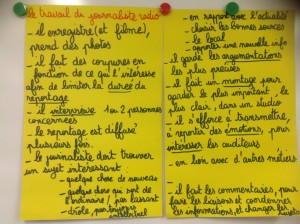 le travail du journaliste radio
- il enregistre (et filme),
prend des photos
- il fait des coupures en
fonction de ce qui l'intéresse
afin de limiter la durée du
reportage
- il interviewe 1 ou 2 personnes
concernées
- le reportage est diffusé
plusieurs fois.
- le journaliste doit trouver
un sujet intéressant :
- quelque chose de nouveau
- quelque chose qui sort de
l'ordinaire / par
- drôle
- en rapport avec l'actualité
- choisir les bonnes sources
- le local
- apporter une nouvelle info
- il garde les argumentations
les plus précises
- il fait un montage pour
garder le plus important, le
plus clair, dans un studio
- il s'efforce à transmettre,
à reporter des émotions, pour
intéresser les auditeurs
- en lien avec d'autres métiers
- il fait les commentaires, pour
faire les liaisons et condenser
les informations et changer les